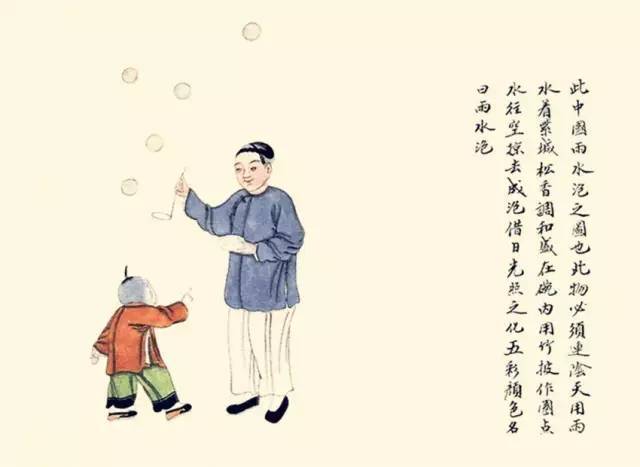 此中國雨水泡之圖也此物必須連陰天用雨
水着紫堿松香調和盛在碗內用竹披作圈点
水往空掠去成泡借日光照之化五彩顏色名
曰雨水泡